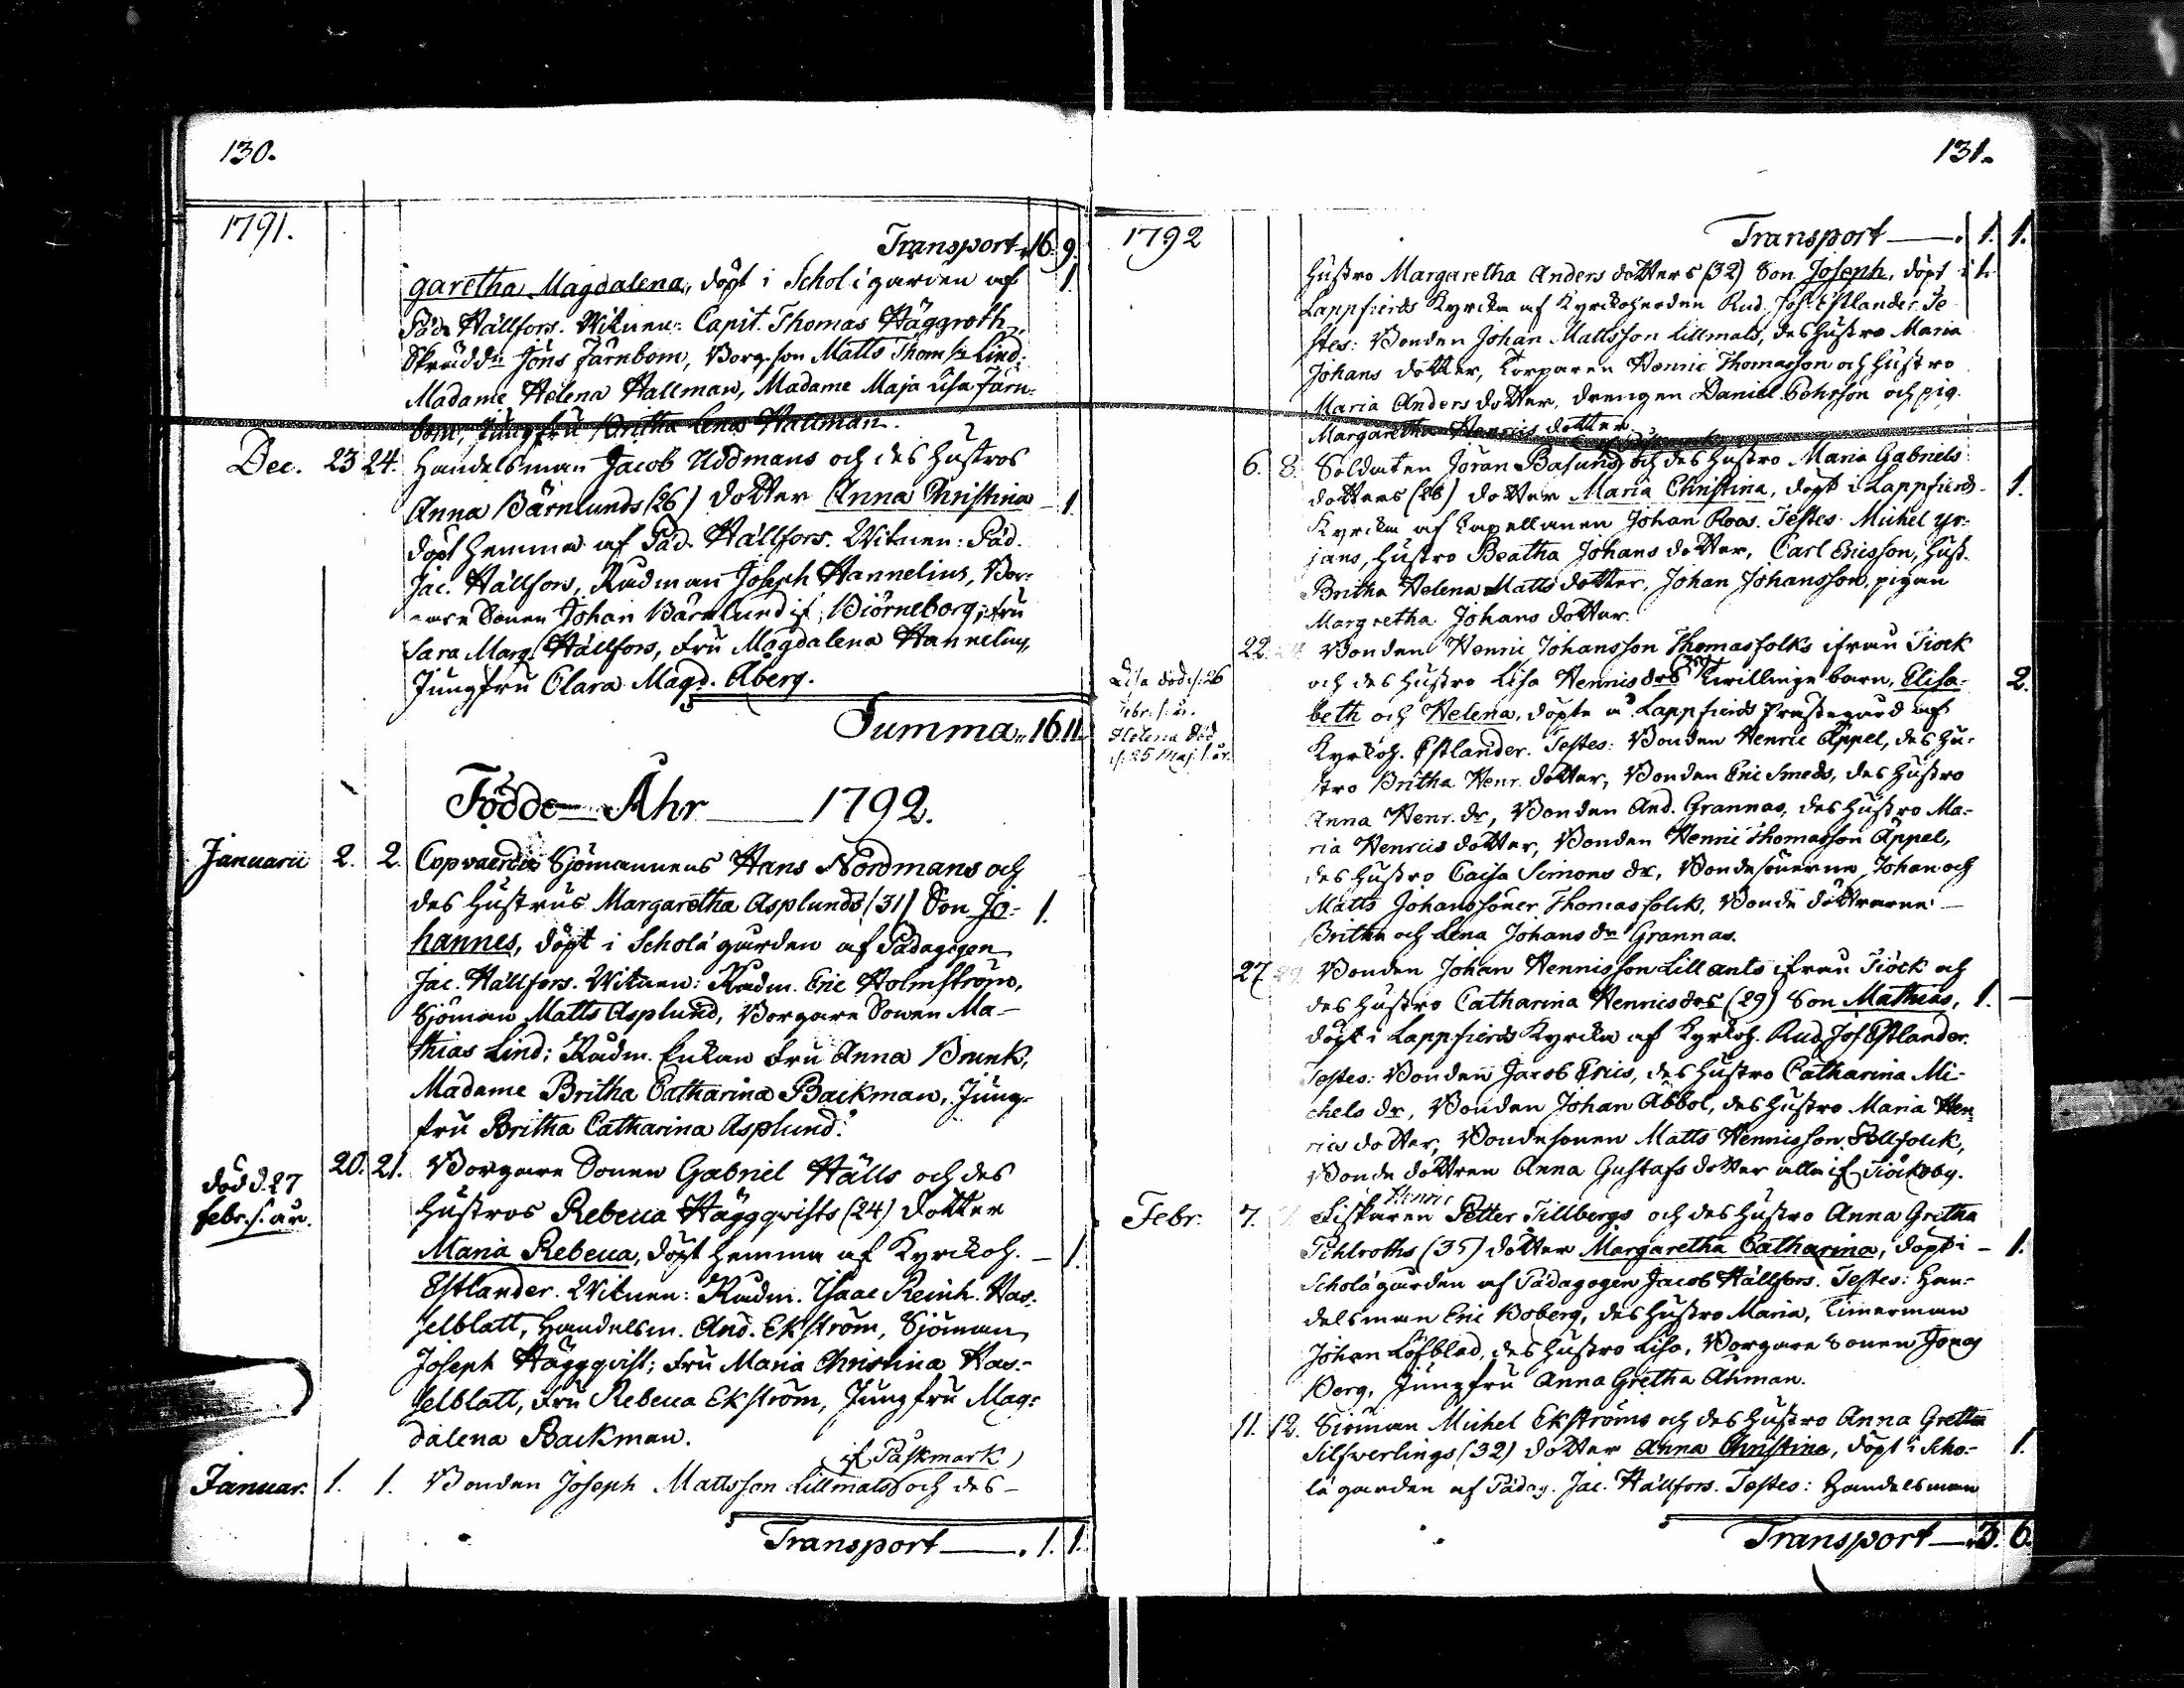 130.
1791.
Transport 16. 9.
garetha Magdalena, döpt i Schol i garden af 1
Päd. Hällfors. Witnen: Capit. Thomas Häggroth,
Skrädd: Jöns Järnbom, Borg. son Matts Lind;
Madame Helena Hallman, Madame Maja Lisa Järn-
bom, Jungfru Britha Lena Hallman.
Dec. 23 24. Handelsman Jacob Uddmans och des Hustros
Anna Bärnlunds (26) dotter Anna Christina — 1.
döpt hemma af Päd. Hällfors. Witnen: Päd.
Jac. Hällfors, Rådman Joseph Hannelius, Bor-
gare Sonen Johan Bärnlund if. Biörneborg; Fru
Sara Marg. Hällfors, Fru Magdalena Hannelius,
Jungfru Clara Magd. Åberg.
Summa 16 11.
Födde Åhr 1792.
Januarii 2. 2. Copvaerdie Sjömannens Hans Nordmans och
des Hustrus Margaretha Asplunds (31) Son Jo- 1.
hannes, döpt i Schola garden af Pädagogen
Jac. Hällfors. Witnen: Rådm. Eric Holmström,
Sjöman Matts Asplund, Borgare Sonen Ma-
thias Lind; Rådm. Enkan Fru Anna Brunk,
Madame Britha Catharina Backman, Jung-
fru Britha Catharina Asplund.
död d. 27
febr. s. år.
20. 21. Borgare Sonen Gabriel Hälls och des
Hustros Rebecca Häggqvists (24) dotter
Maria Rebecca, döpt hemma af Kyrckoh. — 1.
Estlander. Witnen: Rådm. Isaac Reinh. Has-
selblatt, Handelsm. And. Ekström, Sjöman
Joseph Häggqvist; Fru Maria Christina Has-
selblatt, Fru Rebecca Ekström, Jungfru Mag-
dalena Backman.
if Påskmark
Januar. 1. 1. Bonden Joseph Mattsson Lillmats och des
Transport 1. 1.
131.
1792
Transport 1. 1.
Hustro Margaretha Anders dotters (32) Son Joseph, döpt i 1.
Lappfierds Kyrcka af Kyrckoherden Rud. Jos. Estlander. Te-
stes: Bonden Johan Mattsson Lillmats, des Hustro Maria
Johans dotter, Torparen Henric Thomasson och Hustro
Maria Anders dotter, drengen Daniel Pehrsson och pig.
Margaretha Henrics dotter.
6. 8. Soldaten Jöran Basuns och des Hustro Maria Gabriels
dotters (26) dotter Maria Christina, döpt i Lappfierds 1.
Kyrcka af Capellanen Johan Roos. Testes: Michel Yr-
jans, Hustro Beatha Johans dotter, Carl Ericsson, Hust.
Britha Helena Matts dotter, Johan Johansson, pigan
Margretha Johans dotter.
22. Bonden Henric Johansson Thomasfolks ifrån Tiöck
och des Hustro Lisa Henrics drs Twillinge barn, Elisa- 2.
beth och Helena, döpte i Lappfierds Prästegård af
Lisa död d. 26
febr. s. år.
Helena död
d. 25 Maj. s. år.
Kyrckoh. Estlander. Testes: Bonden Henric Äppel, des Hu-
stro Britha Henr. dotter, Bonden Eric Smeds, des Hustro
Anna Henr. dr, Bonden And. Grannas, des Hustro Ma-
ria Henrics dotter, Bonden Henric Thomasson Äppel,
des Hustro Caisa Simons dr, Bondesönerne Johan och
Matts Johanssöner Thomasfolck, Bonde döttrarne
Britha och Lena Johans dr Grannas.
27. 29. Bonden Johan Henricsson Lillants ifrån Tiöck och
des Hustro Catharina Henrics drs (29) Son Mathias, 1.
döpt i Lappfierds Kyrcka af Kyrckoh. Rud. Jos. Estlander.
Testes: Bonden Jacob Erics, des Hustro Catharina Mi-
chels dr, Bonden Johan Abbol, des Hustro Maria Hen-
rics dotter, Bondesonen Matts Henricsson Sollfolck,
Bonde dottren Anna Gustafs dotter alla if. Tiöckby.
Henric
Febr. 7. Fiskaren Petter Tillbergs och des Hustro Anna Gretha
Pihlroths (35) dotter Margaretha Catharina, döpt i — 1.
Schola garden af Pädagogen Jacob Hällfors. Testes: Han-
delsman Eric Boberg, des Hustro Maria, Timerman
Johan Löfblad, des Hustro Lisa, Borgare Sonen Jonas
Berg, Jungfru Anna Gretha Åhman.
11. 12. Siöman Michel Ekströms och des Hustro Anna Gretha
Silfverlings (32) dotter Anna Christina, döpt i Scho- 1.
la garden af Pädag. Jac. Hällfors. Testes: Handelsman
Transport 3. 6.